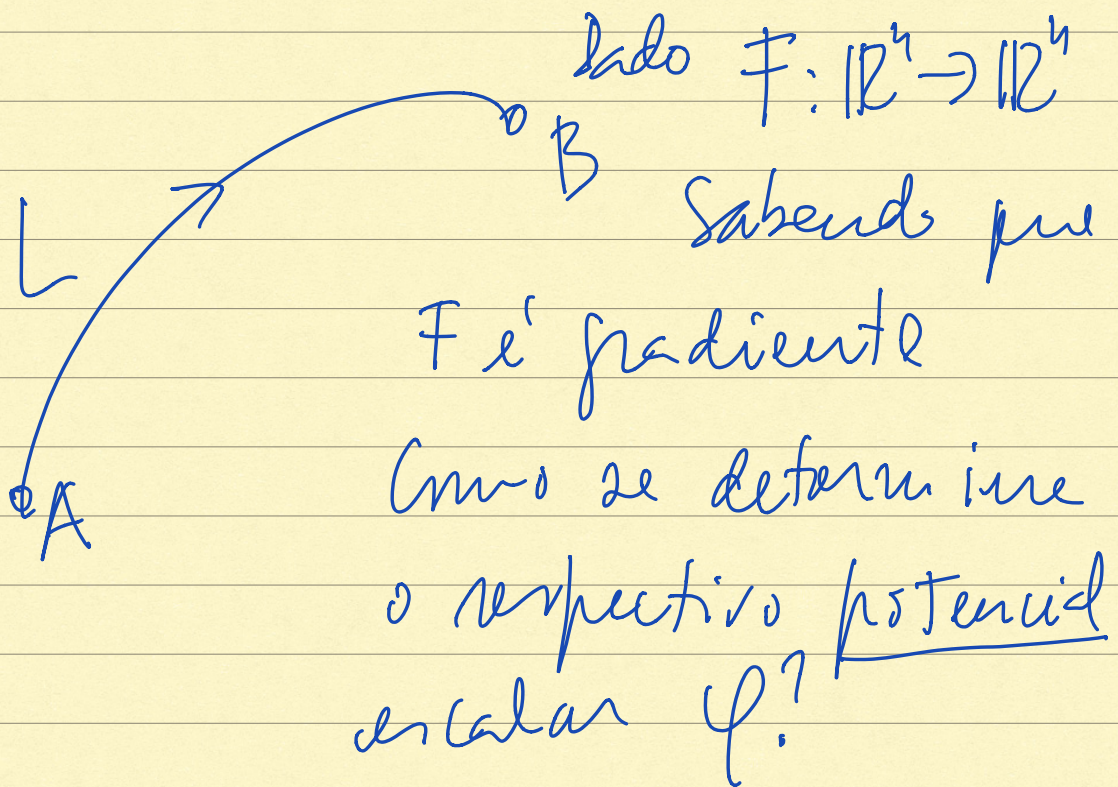 Dado F: ℝⁿ → ℝⁿ
B
Sabendo que
L
F é gradiente
Como se determina
A
o respectivo potencial
escalar φ?